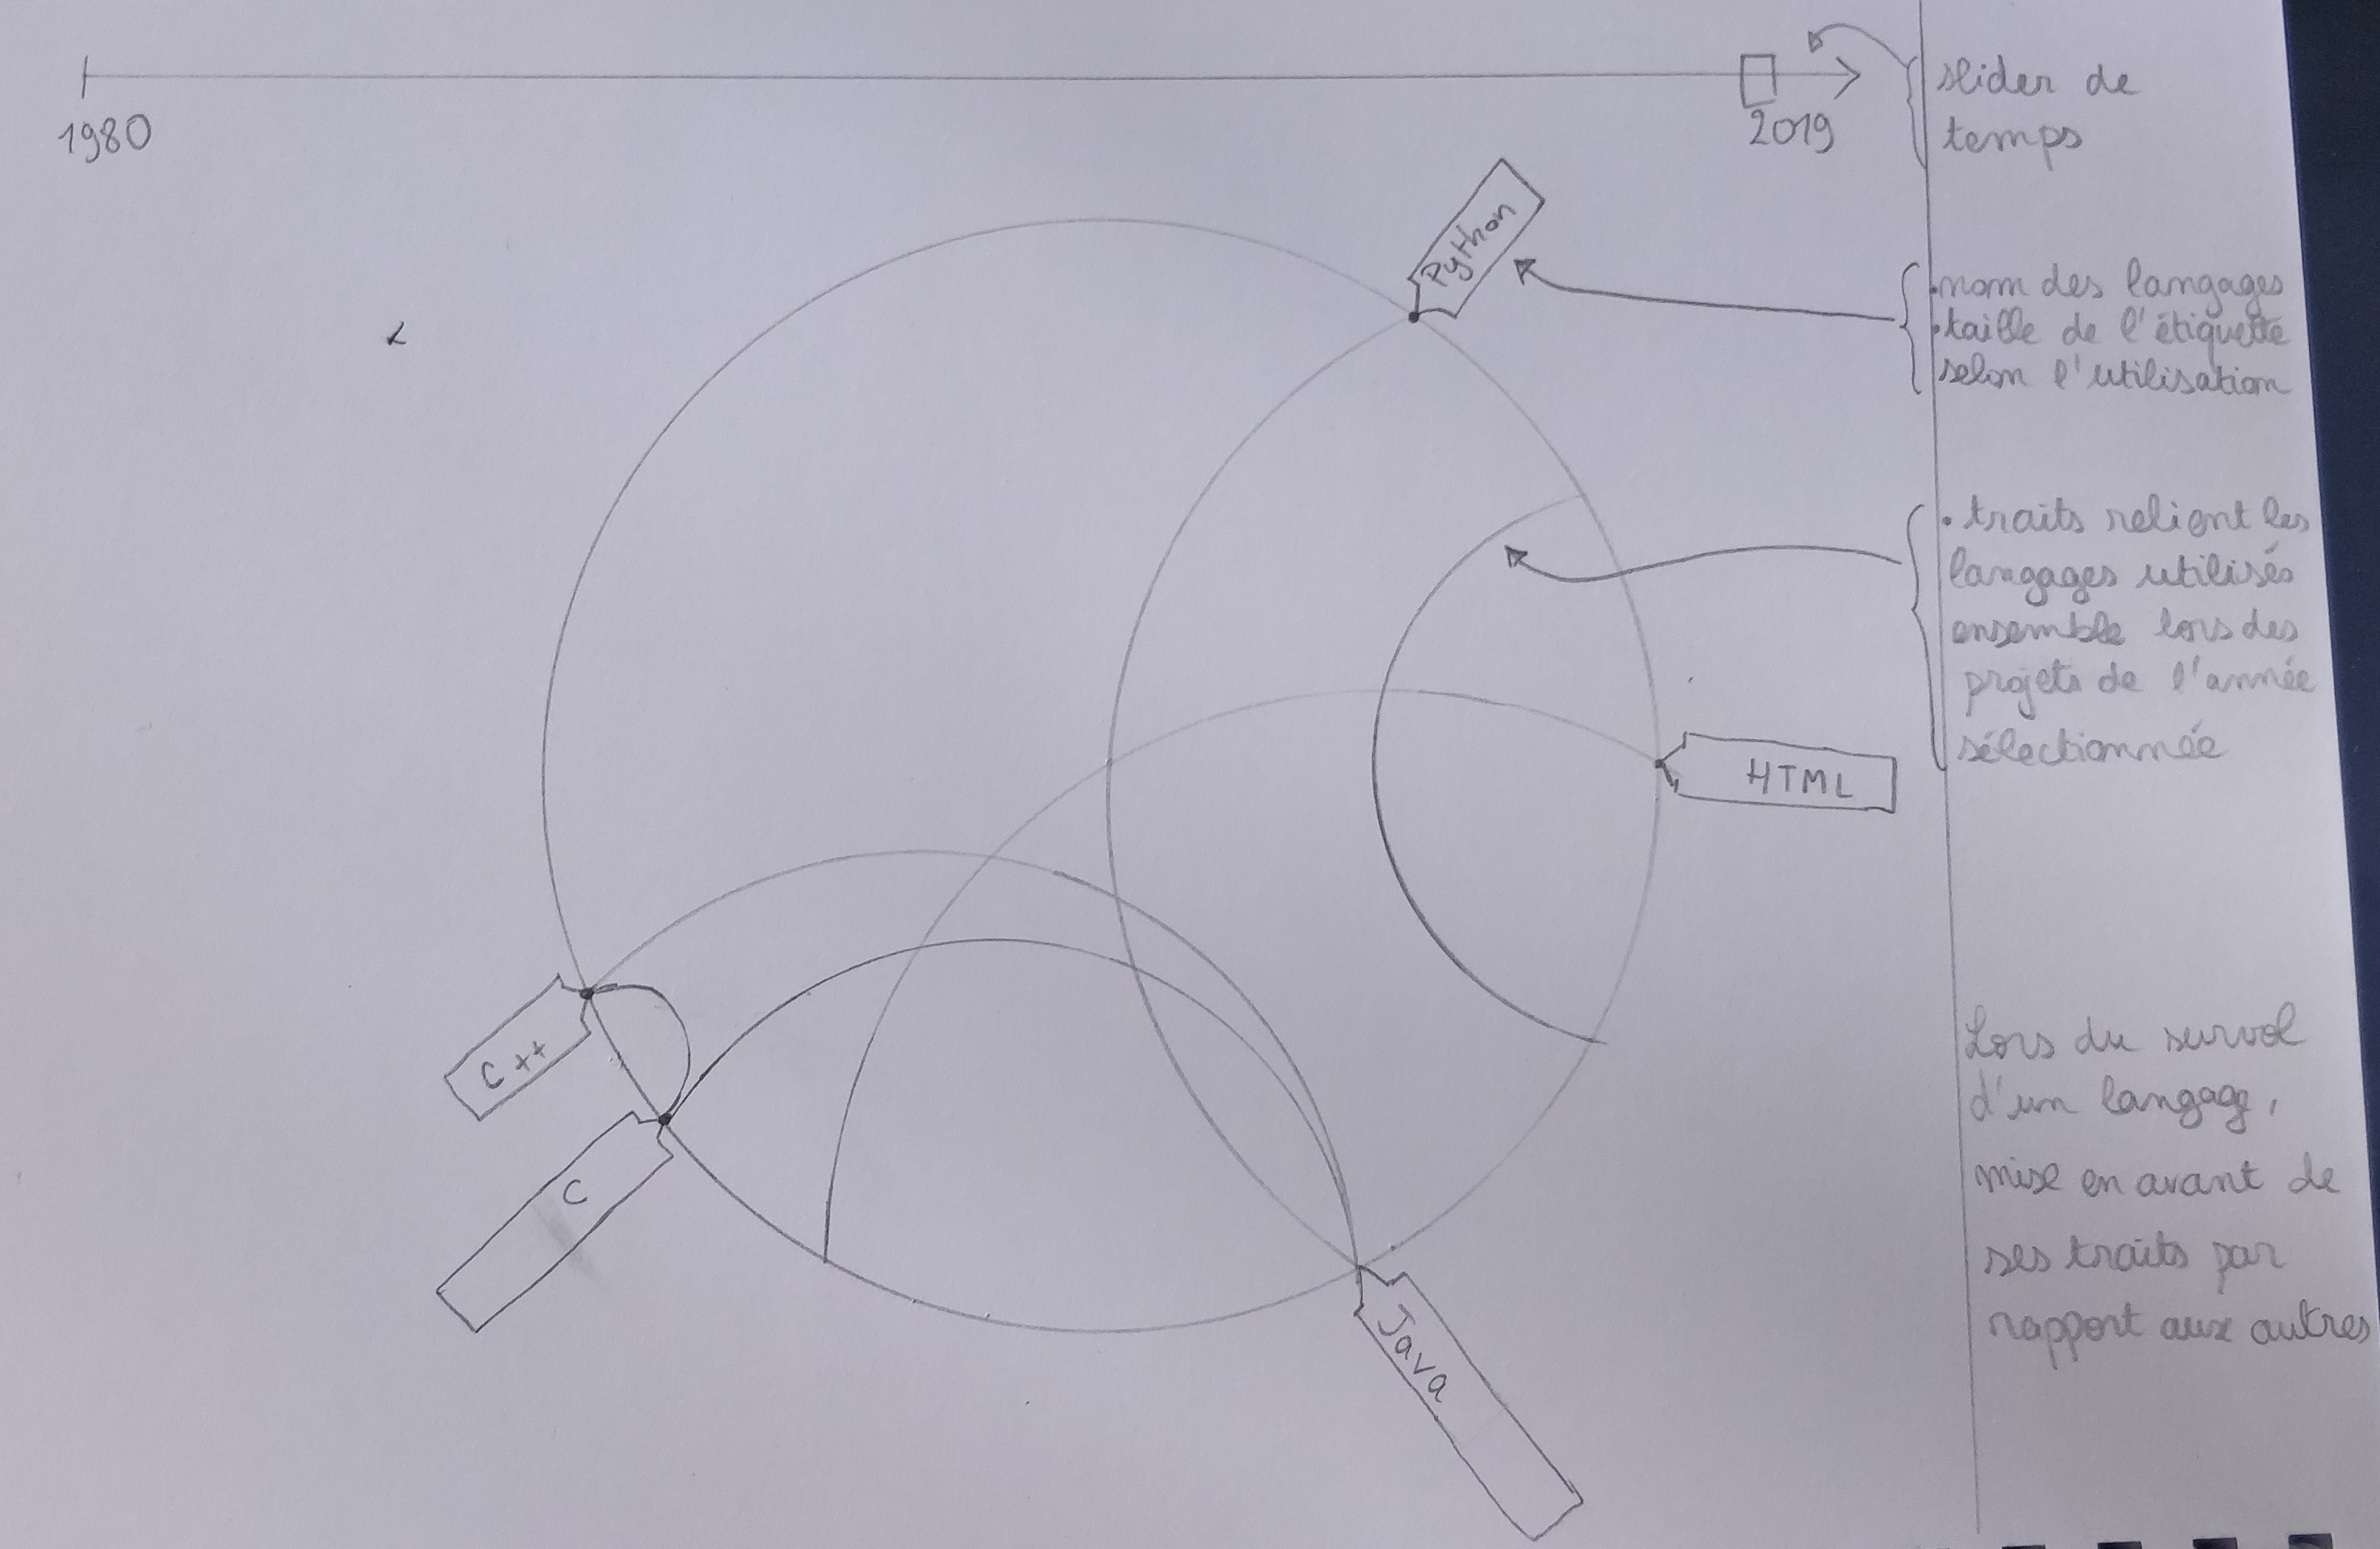 1980
2019
slider de
temps
Python
• nom des langages
• taille de l'étiquette
selon l'utilisation
• traits relient les
langages utilisés
ensemble lors des
projets de l'année
sélectionnée
HTML
C++
C
Java
Lors du survol
d'un langage,
mise en avant de
ses traits par
rapport aux autres